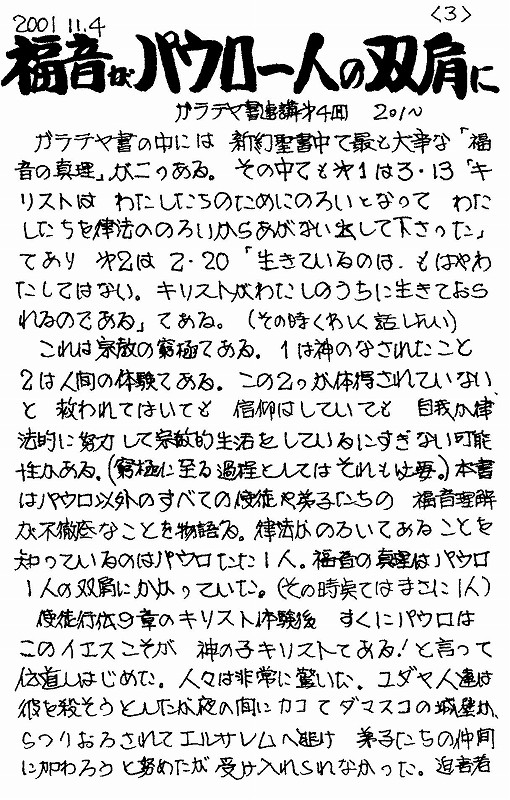 2001 11.4
〈3〉
福音がパウロ一人の双肩に
ガラテヤ書連講才4回 2:1〜
ガラテヤ書の中には 新約聖書中で最も大事な「福
音の真理」が二つある。その中でも才1は3・13「キ
リストは わたしたちのためにのろいとなって わた
したちを律法ののろいからあがない出して下さった」
であり 才2は 2・20「生きているのは、もはやわ
たしではない。キリストがわたしのうちに生きておら
れるのである」である。(その時くわしく話したい)
これは宗教の窮極である。1は神のなされたこと
2は人間の体験である。この2つが体得されていない
と 救われてはいても 信仰はしていても 自我が律
法的に努力して宗教的生活をしているにすぎない可能
性がある。(窮極に至る過程としてはそれも必要。)本書
はパウロ以外のすべての使徒や弟子たちの 福音理解
が不徹底なことを物語る。律法がのろいであることを
知っているのはパウロたた1人。福音の真理はパウロ
1人の双肩にかかっていた。(その時点ではまさに1人)
使徒行伝9章のキリスト体験後 すぐにパウロは
このイエスこそが 神の子キリストである!と言って
伝道しはじめた。人々は非常に驚いた。ユダヤ人達は
彼を殺そうとしたが夜の間にカゴでダマスコの城壁か
らつりおろされてエルサレムへ逃げ 弟子たちの仲間
に加わろうと努めたが 受け入れられなかった。迫害者